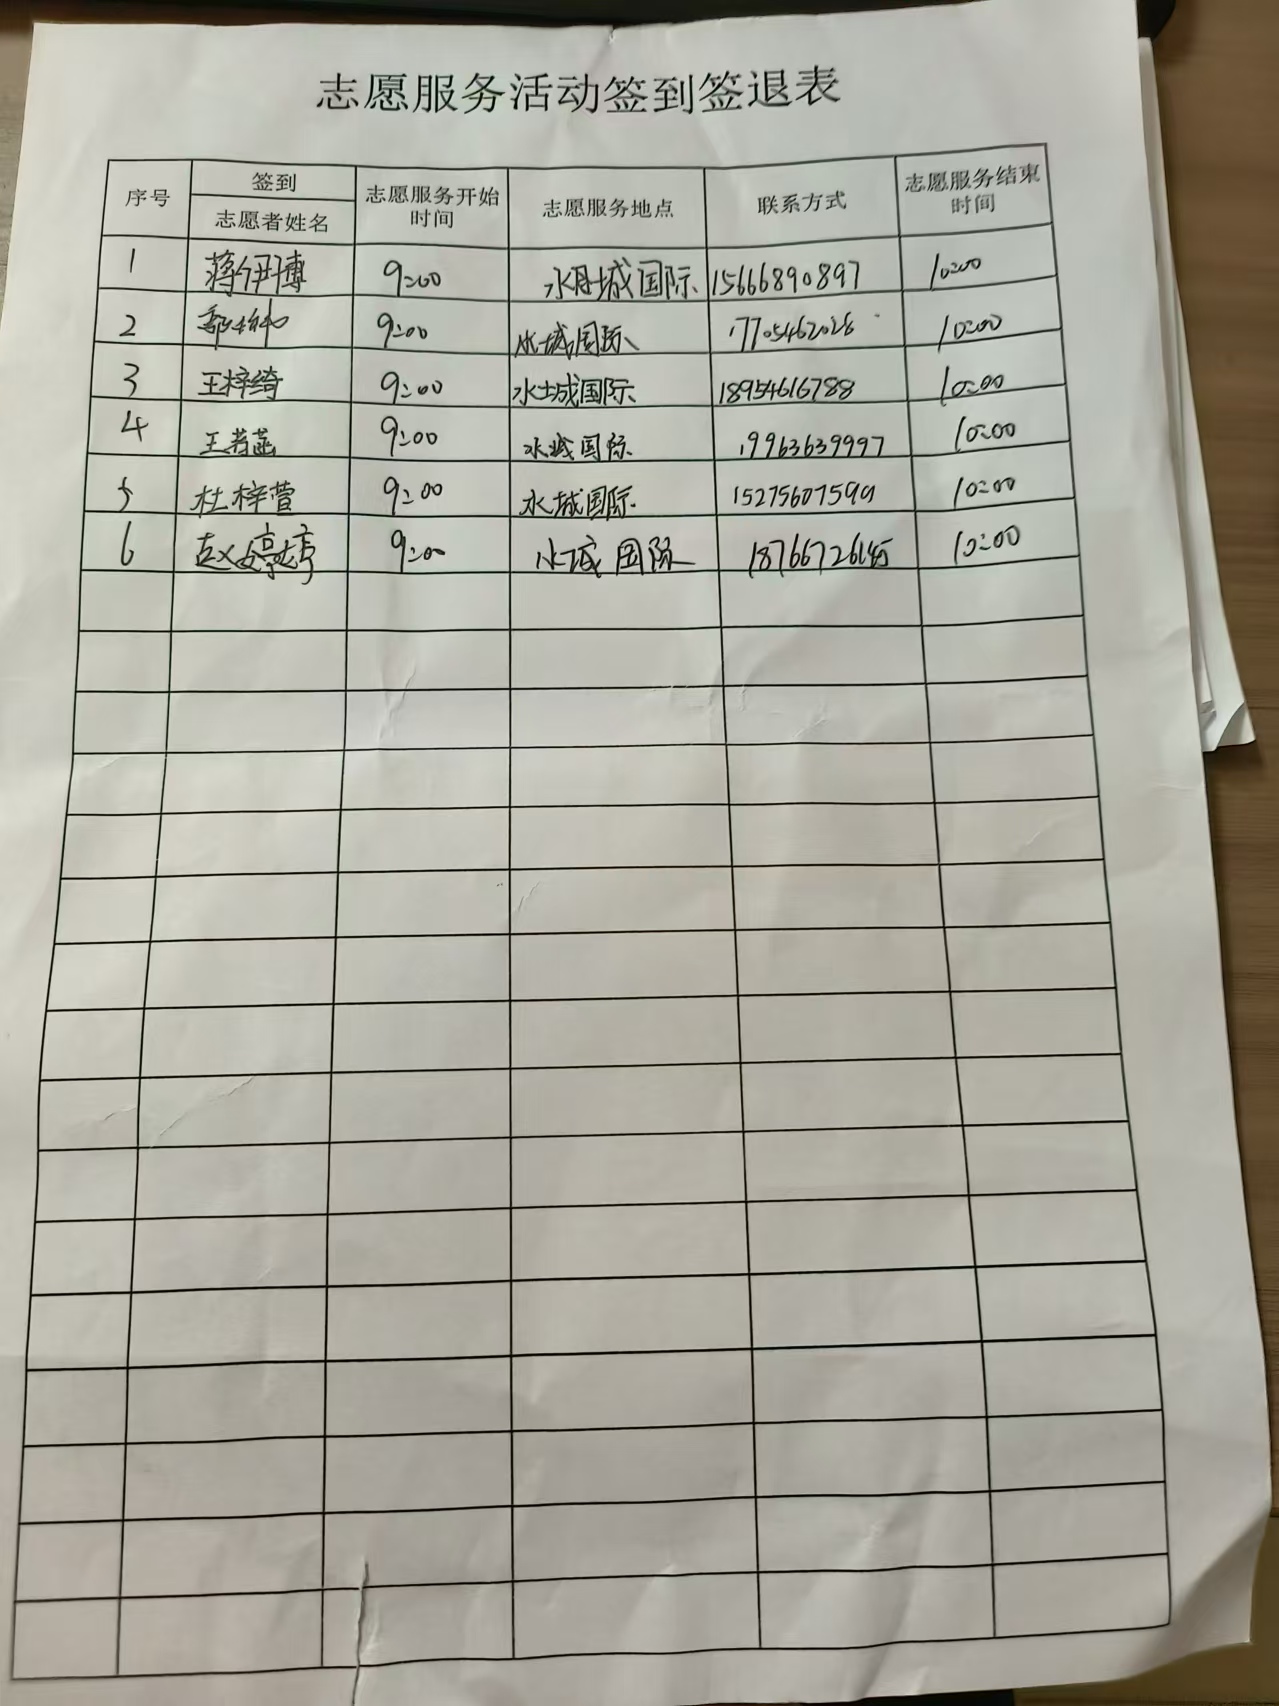 志愿服务活动签到签退表
序号 签到 志愿者姓名 志愿服务开始时间 志愿服务地点 联系方式 志愿服务结束时间
1 蒋伊博 9:00 水城国际 15666890897 10:00
2 9:00 水城国际 17705462026 10:00
3 王梓绮 9:00 水城国际 18954616788 10:00
4 王若菡 9:00 水城国际 19963639997 10:00
5 杜梓萱 9:00 水城国际 15275607599 10:00
6 赵婷婷 9:00 水城国际 10:00